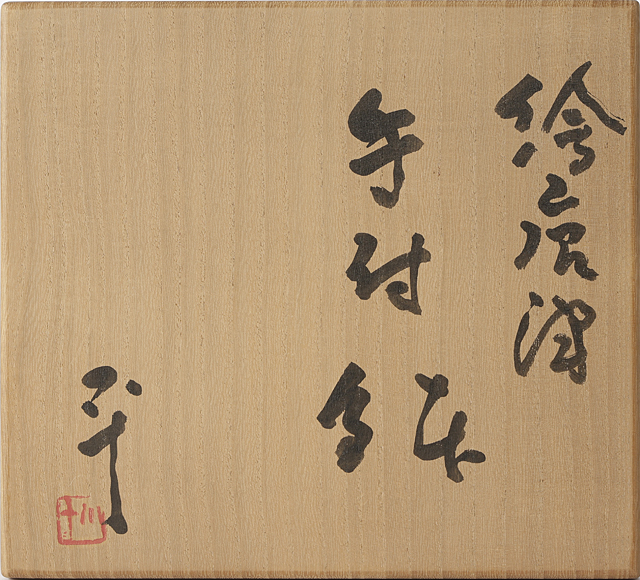 繪唐津
手付鉢